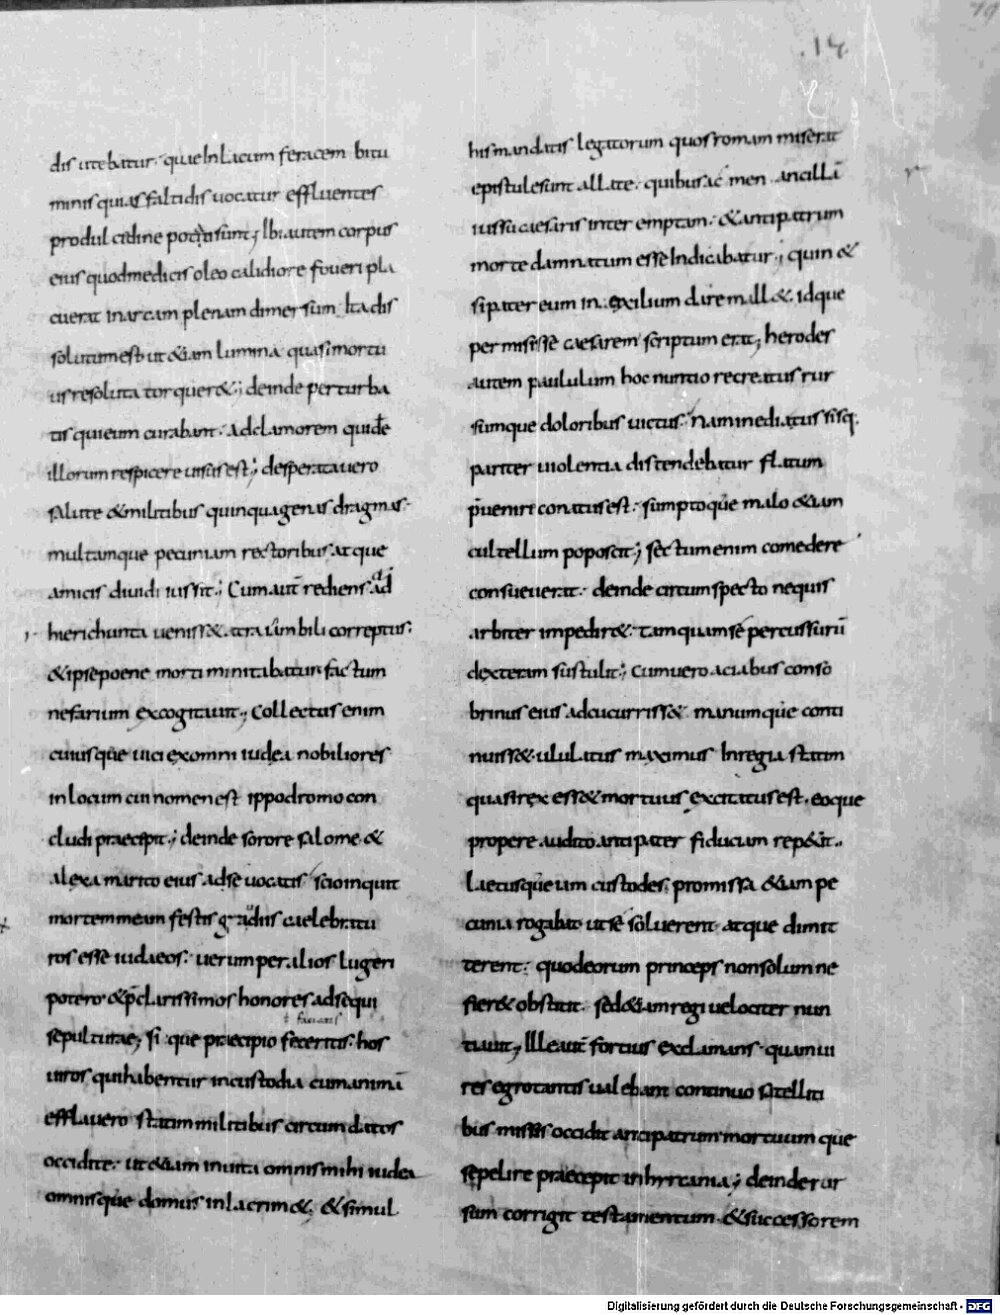 14
dis utebatur. quae In lacum feracem bitu
minis qui asfaltidis uocatur effluentes
produlcidine potai sunt; Ibi autem corpus
eius quod medicis oleo calidiore foueri pla
cuerat in arcam plenam dimersum Ita dis
solutum est ut &iam lumina quasi mortu
us resoluta torquer&; deinde perturba
tis qui eum curabant. Ad clamorem quidē
illorum respicere uisus est; desperata uero
salute & militibus quinquagenas dragmas.
multamque pecuniam rectoribus. atque
amicis diuidi iussit; Cum aut̄ rediens ad
hierichunta ueniss& atra um bili correptus.
& ipse poene morti minitabatur factum
nefarium excogitauit; Collectus enim
cuiusque uici ex omni iudea nobiliores
in locum cui nomen est ippodromo con
cludi praecipit; deinde sorore salome &
alexa marito eius ad se uocatis scio inquit
mortem meam festis gaudiis caelebratu
ros esse iudaeos. uerum per alios lugeri
potero & p̄clarissimos honores adsequi
sepulturae, si que praecipio feceritis. hos
uiros qui habentur in custodia cum animā
efflauero statim militibus circumdatos
occidite. ut &iam inuita omnis mihi iudea
omnisque domus inlacrim&; & simul
his mandatis legatorum quos romam miserat
epistule sunt allate. quibus ac men ancillā
iussu caesaris interemptam. & antipatrum
morte damnatum esse Indicabatur; quin &
si pater eum in exilium dare mall& idque
permisisse caesarem scriptum erat; herodes
autem paululum hoc nuntio recreatus rur
sumque doloribus uictus. Nam inedia tussisq.
pariter uiolentia distendebatur flatum
p̄uenire conatus est. sumptoque malo &iam
cultellum poposcit; sectum enim comedere
consueuerat. deinde circumspecto nequis
arbiter impedir& tamquam se percussurū
dexteram sustulit; cum uero aciabus conso
brinus eius adcucurriss& manumque conti
nuiss& ululatus maximus In regia statim
quasi rex ess& mortuus excitatus est. eoque
propere audito antipater fiduciam rep&it.
Laetusque iam custodes, promissa &iam pe
cunia rogabat ut se soluerent atque dimit
terent. quod eorum princeps non solum ne
fier& obstitit. sed &iam regi uelociter nun
tiauit; Ille aut̄ fortius exclamans quam ui
res egrotantis ualebant continuo satelliti
bus missis occidit antipatrum mortuumque
sepelire praecepit in hyrcania; deinde rur
sum corrigit testamentum & successorem
Digitalisierung gefördert durch die Deutsche Forschungsgemeinschaft - DFG